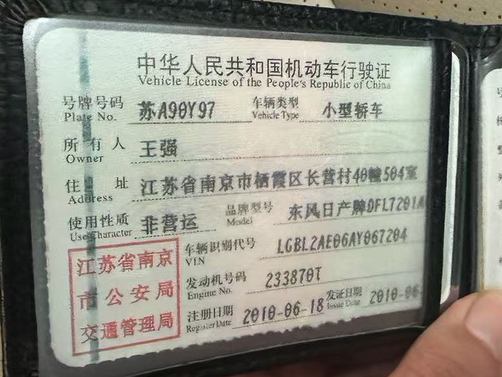 中华人民共和国机动车行驶证
Vehicle License of the People's Republic of China
号牌号码 苏A90Y97 车辆类型 小型轿车
Plate No. Vehicle Type
所有人 王强
Owner
住址 江苏省南京市栖霞区长营村40幢504室
Address
使用性质 非营运 品牌型号 东风日产牌DFL7201A
Use Character Model
江苏省南京
市公安局
交通管理局
车辆识别代号 LGBL2AE06AY067204
VIN
发动机号码 233870T
Engine No.
注册日期 2010-06-18 发证日期 2010-06
Register Date Issue Date